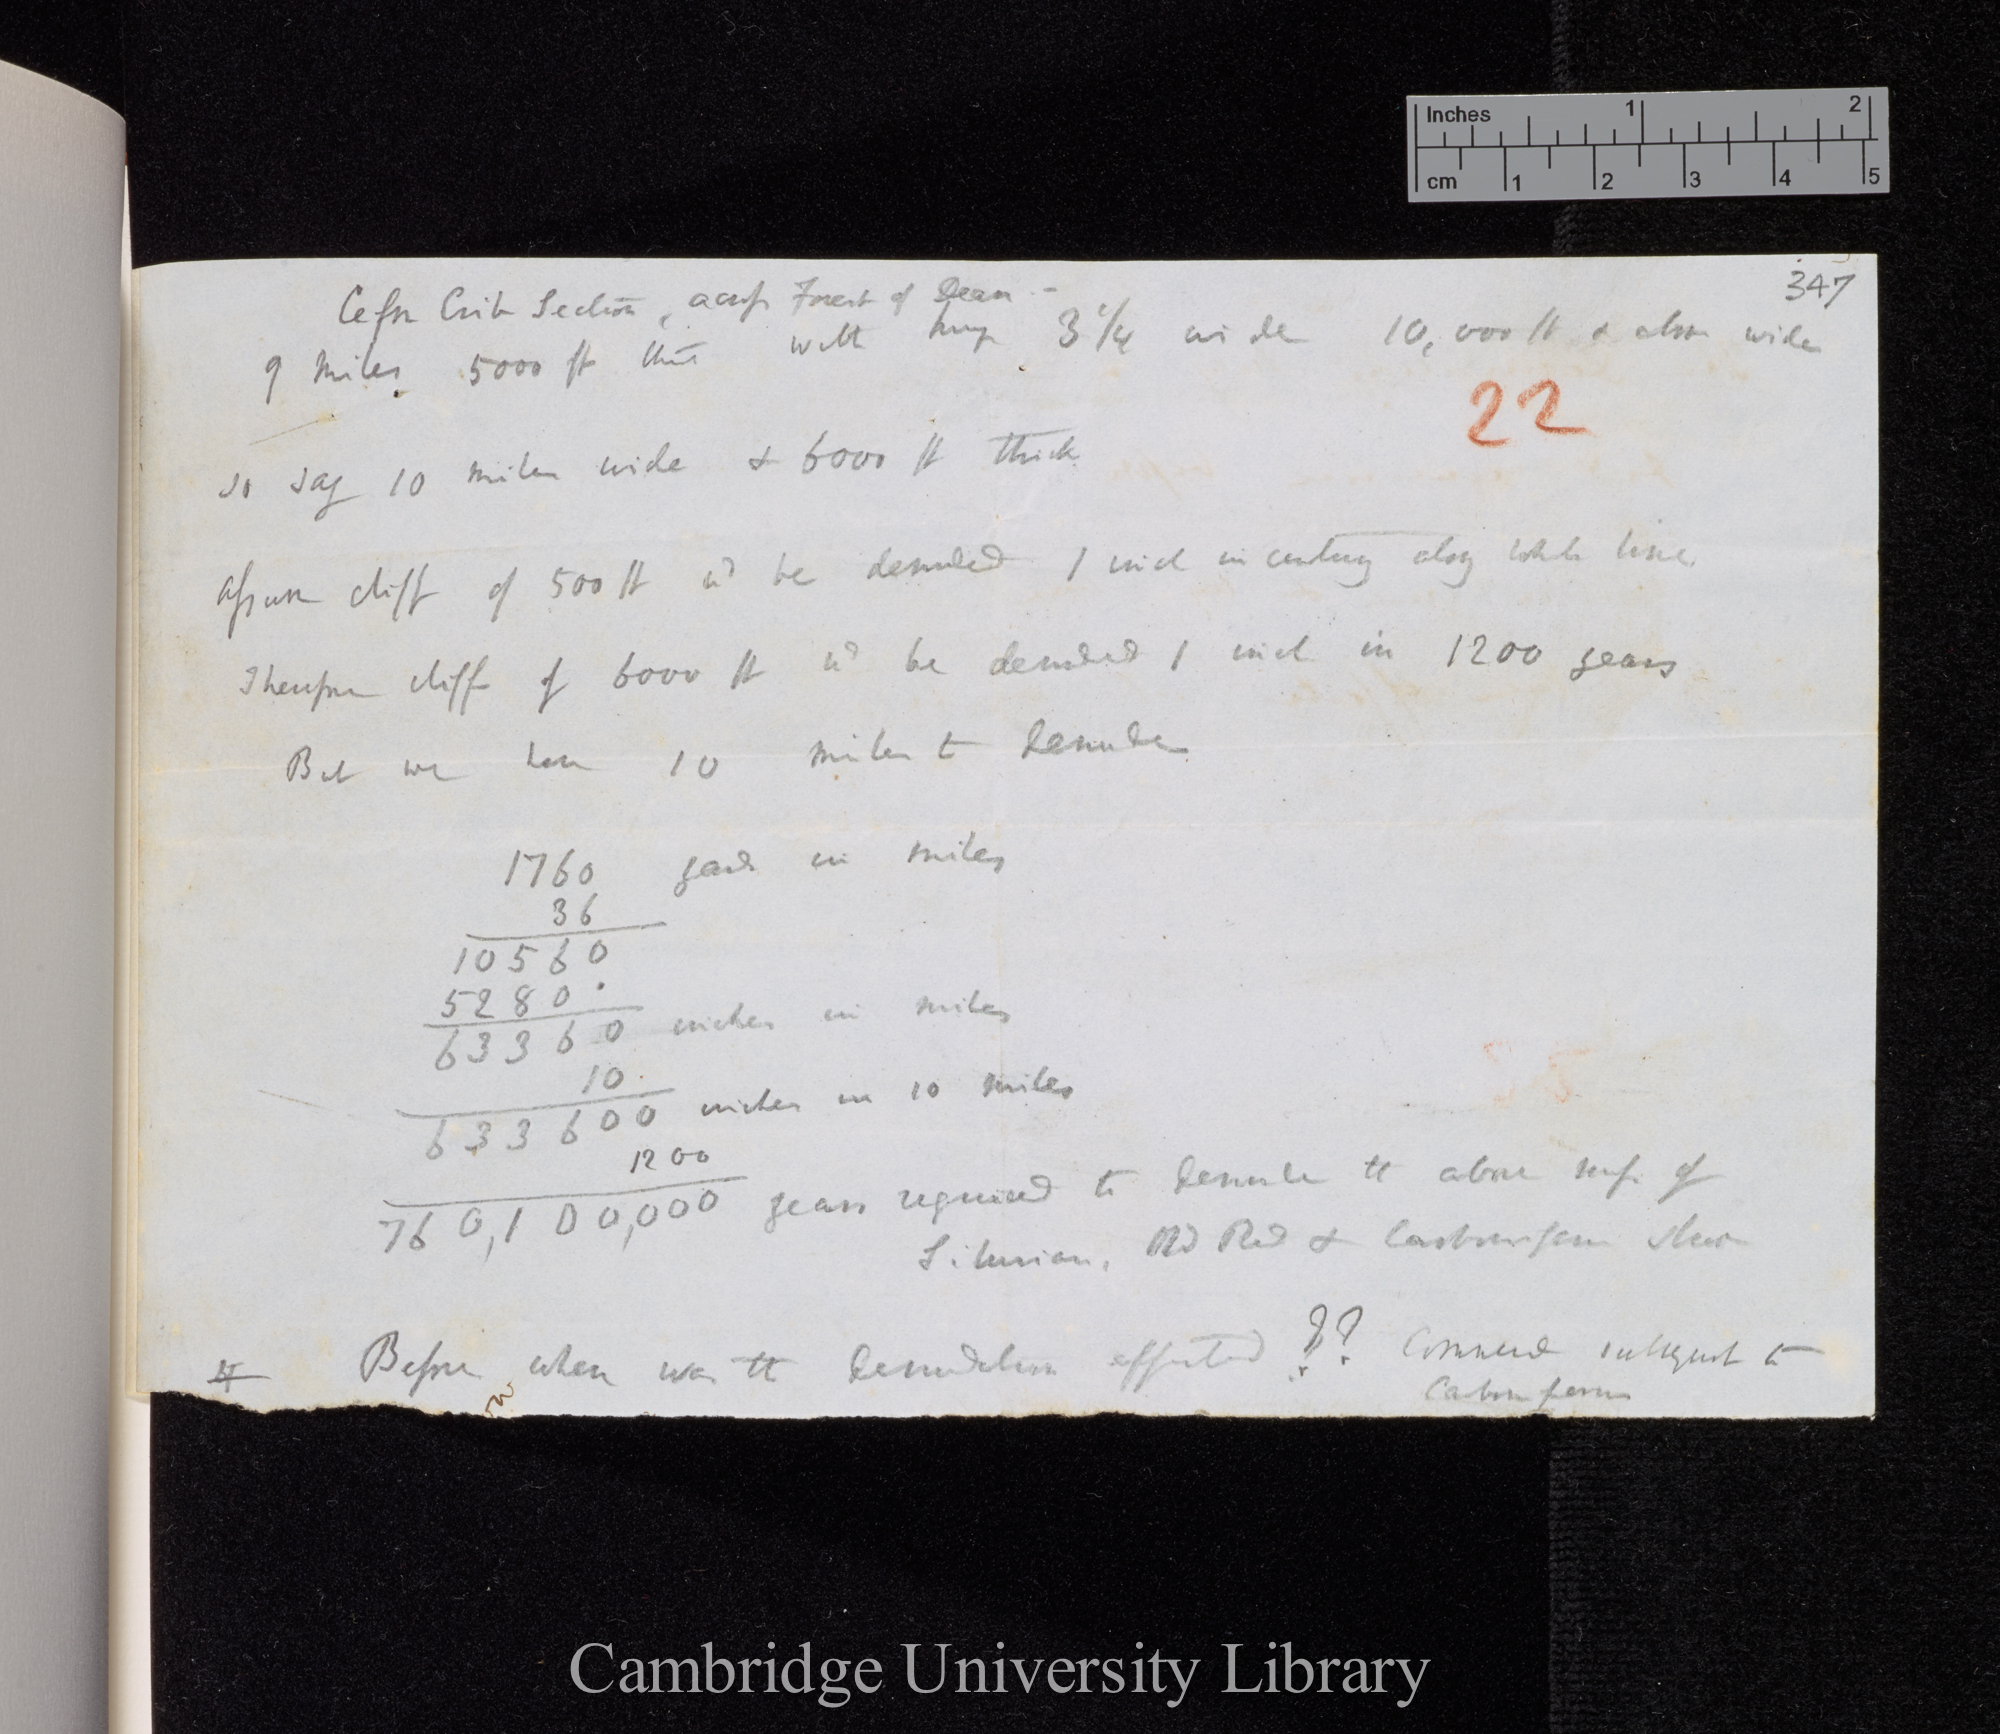 Inches 1 2
cm 1 2 3 4 5
347
Cefn Crib Section, across Forest of Dean –
9 miles 5000 ft thick with hump 3 1/4 wide 10,000 ft & above wide
22
so say 10 miles wide & 6000 ft thick
Assume cliff of 500 ft wd be denuded 1 inch in century along whole line.
Therefore cliff of 6000 ft wd be denuded 1 inch in 1200 years
But we have 10 miles to denude
1760 yards in miles
36
10560
5280.
63360 inches in miles
10
633600 inches in 10 miles
1200
760,100,000 years required to denude tt above of
Silurian, Old Red & Carboniferous
Before when was tt denudation effected ?? Commenced subsequent to
Carboniferous
Cambridge University Library